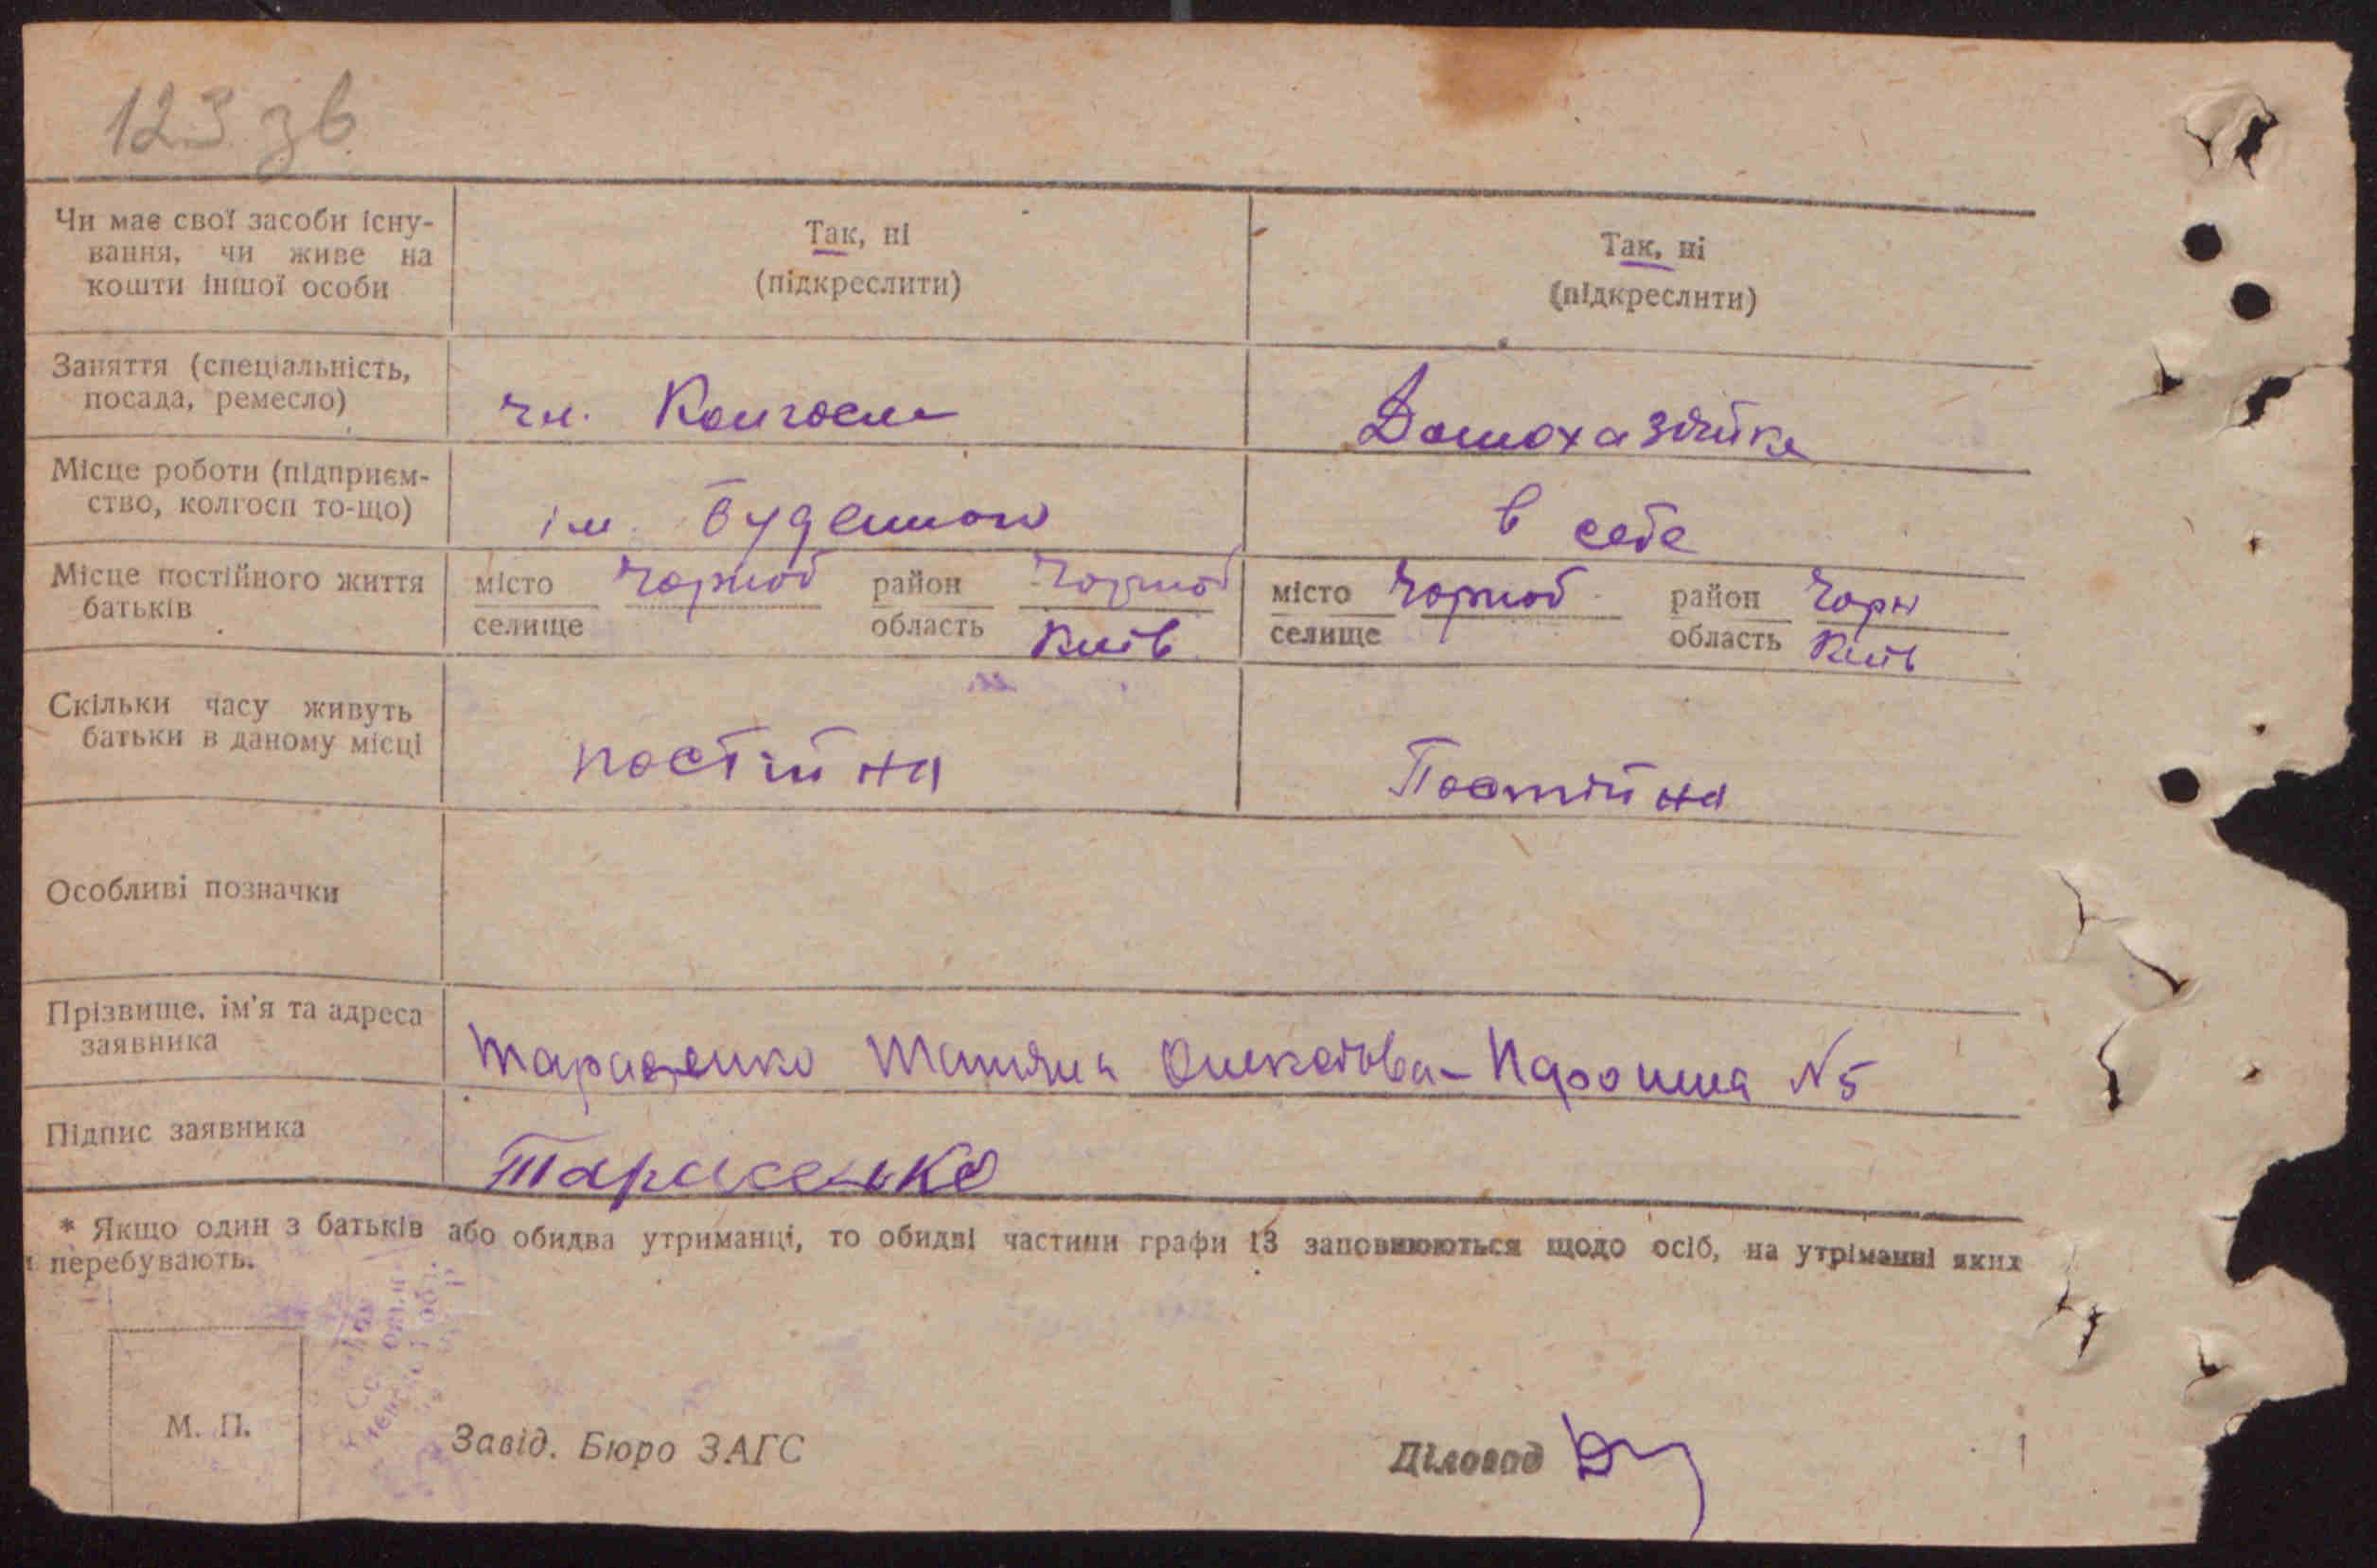 123 зв
Чи має свої засоби існу-
вання, чи живе на
кошти іншої особи
Так, ні
(підкреслити)
Так, ні
(підкреслити)
Заняття (спеціальність,
посада, ремесло)
чл. Колгосп
Домохазяйка
Місце роботи (підприєм-
ство, колгосп то-що)
ім. Буденного
в себе
Місце постійного життя
батьків
місто Чорноб район Чорноб
селище область Київ
місто Чорноб район Чорн
селище область Київ
Скільки часу живуть
батьки в даному місці
постійна
Постійна
Особливі позначки
Прізвище, ім'я та адреса
заявника
Тарасенко Тетяна N5
Підпис заявника
Тарасенко
* Якщо один з батьків або обидва утриманці, то обидві частини графи 13 заповнюються щодо осіб, на утріманні яких
перебувають.
М. П.
Завід. Бюро ЗАГС
Діловод